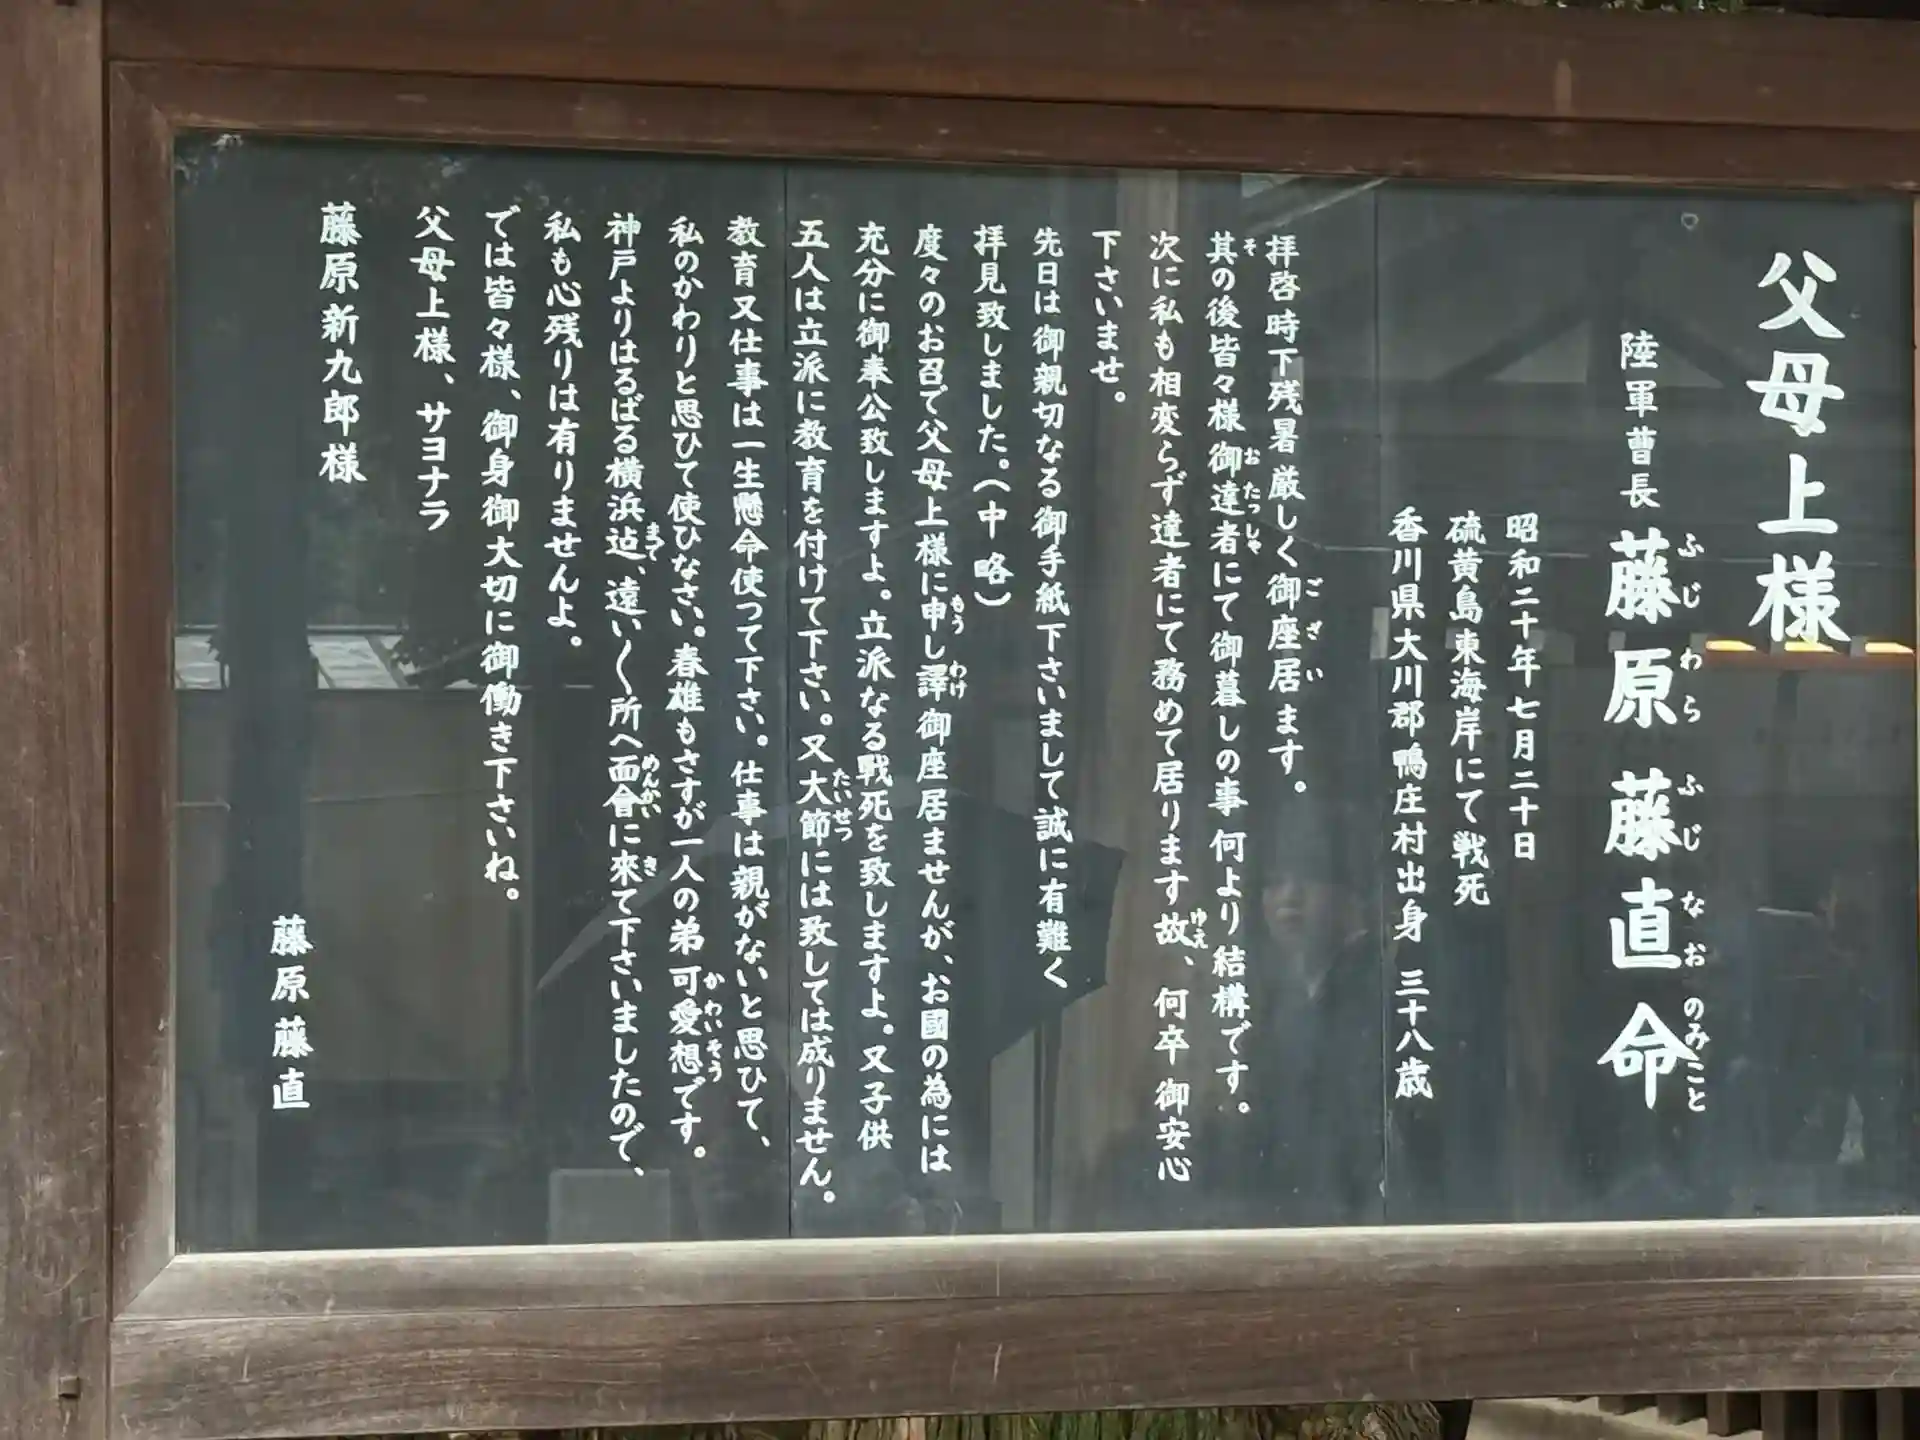 父母上様
陸軍曹長 藤原藤直命
ふじ わら ふじ なお のみこと
昭和二十年七月二十日
硫黄島東海岸にて戦死
香川県大川郡鴨庄村出身 三十八歳
拝啓時下残暑厳しく御座居ます。
ご ざ い
其の後皆々様御達者にて御暮しの事何より結構です。
そ お たっしゃ
次に私も相変らず達者にて務めて居ります故、何卒御安心
ゆえ
下さいませ。
先日は御親切なる御手紙下さいまして誠に有難く
拝見致しました。(中略)
度々のお召で父母上様に申し譯御座居ませんが、お國の為には
もう わけ
充分に御奉公致しますよ。立派なる戦死を致しますよ。又子供
五人は立派に教育を付けて下さい。又大節には致しては成りません。
たいせつ
教育又仕事は一生懸命使つて下さい。仕事は親がないと思ひて、
私のかわりと思ひて使ひなさい。春雄もさすが一人の弟可愛想です。
か わいそう
神戸よりはるばる横浜迠、遠い〱所へ面會に來て下さいましたので、
まで めんかい き
私も心残りは有りませんよ。
では皆々様、御身御大切に御働き下さいね。
父母上様、サヨナラ
藤原新九郎様
藤原藤直